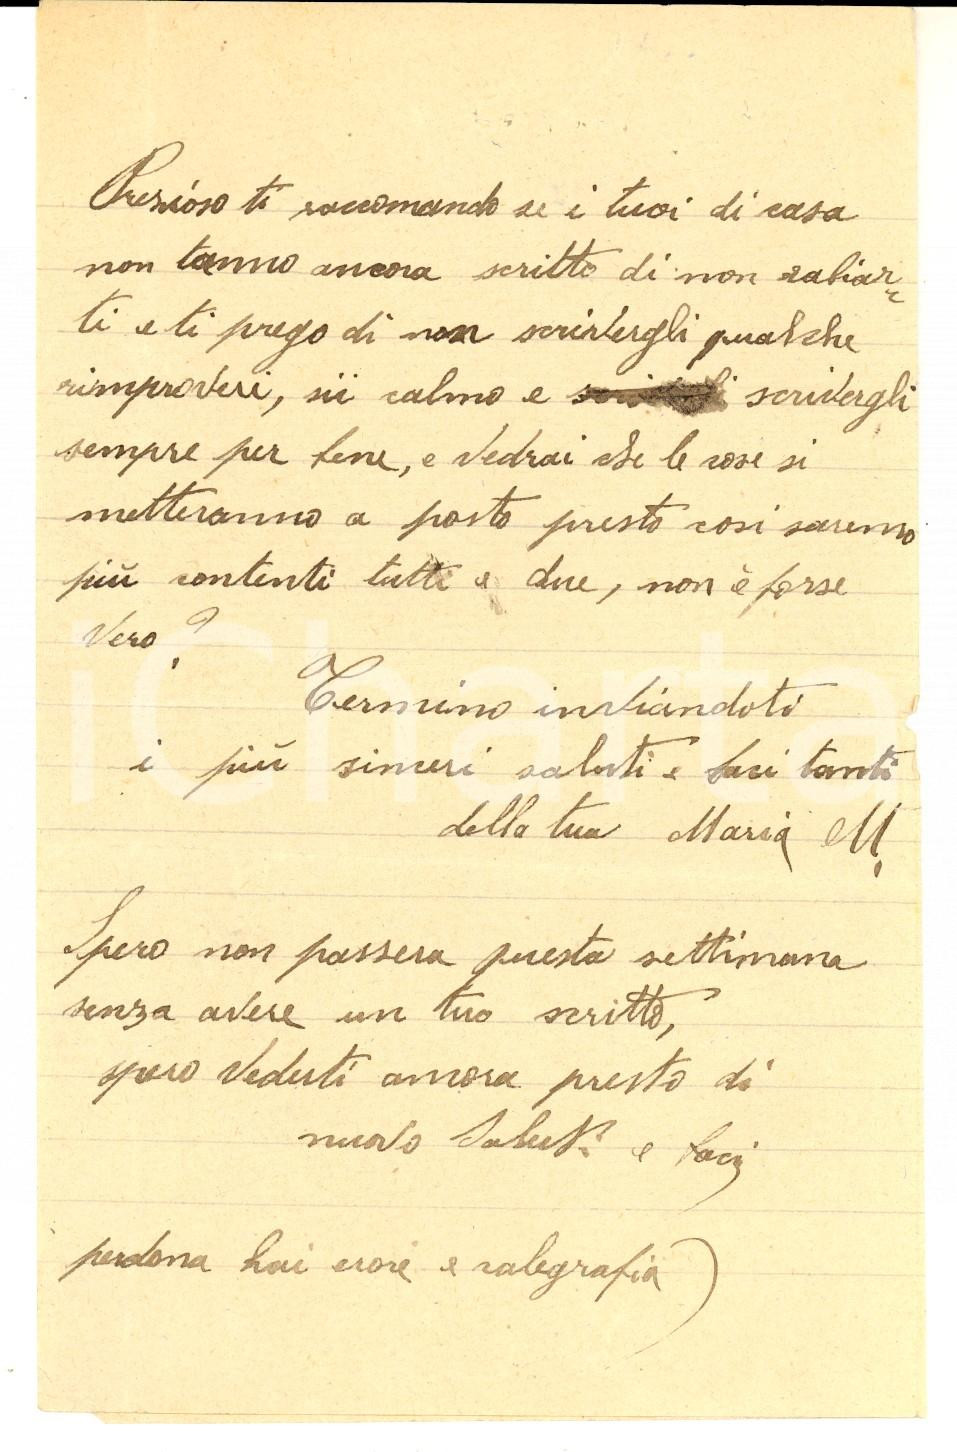 Prezioso ti raccomando se i tuoi di casa
non tanno ancora scritto di non rabiar=
ti e ti prego di non scrivergli qualche
rimproveri, sii calmo e scrivergli
sempre per bene, e vedrai che le cose si
metteranno a posto presto cosi saremo
più contenti tutti e due, non è forse
vero?
Termino inviandoti
i più sinceri saluti e baci tanti
della tua Maria M.
Spero non passera questa settimana
senza avere un tuo scritto,
spero vederti ancora presto di
nuovo Saluti e baci
perdona hai erori e calegrafia)
iCharta